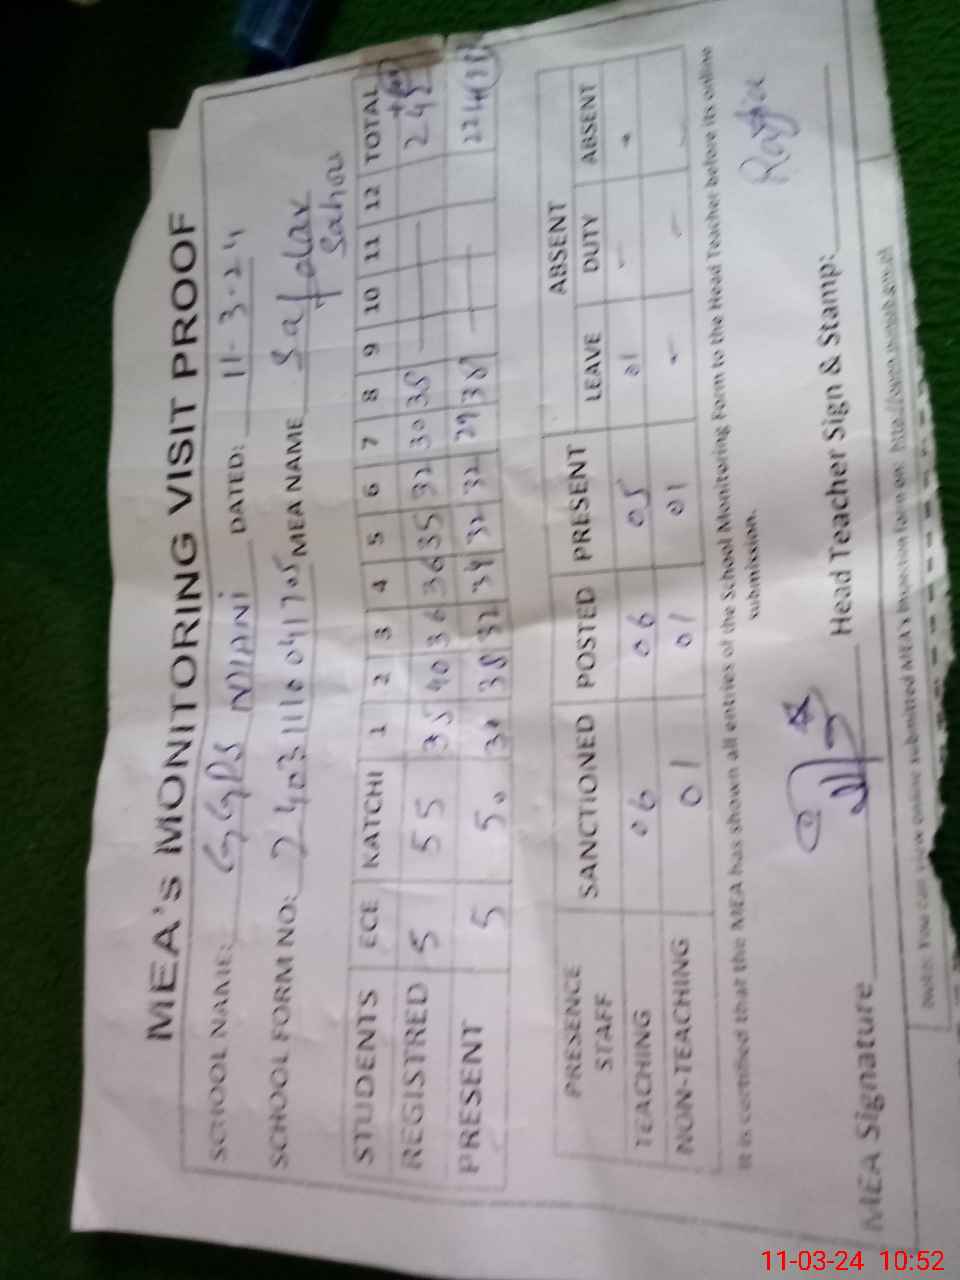 MEA's MONITORING VISIT PROOF
SCHOOL NAME: GGPS NIIANI DATED: 11-3-24
SCHOOL FORM NO: 2403111041705 MEA NAME Safdar
Sahou
STUDENTS ECE KATCHI 1 2 3 4 5 6 7 8 9 10 11 12 TOTAL
REGISTRED 5 55 35 40 36 36 35 32 30 35 245
PRESENT 5 50 30 38 32 34 32 32 29 38
PRESENCE STAFF SANCTIONED POSTED PRESENT ABSENT
LEAVE DUTY ABSENT
TEACHING 06 06 05 01 - -
NON-TEACHING 01 01 01 - - -
It is certified that the MEA has shown all entries of the School Monitoring Form to the Head Teacher before its online
submission.
MEA Signature Head Teacher Sign & Stamp:
Note: You can view online submitted MEA's Inspection form on:
11-03-24 10:52